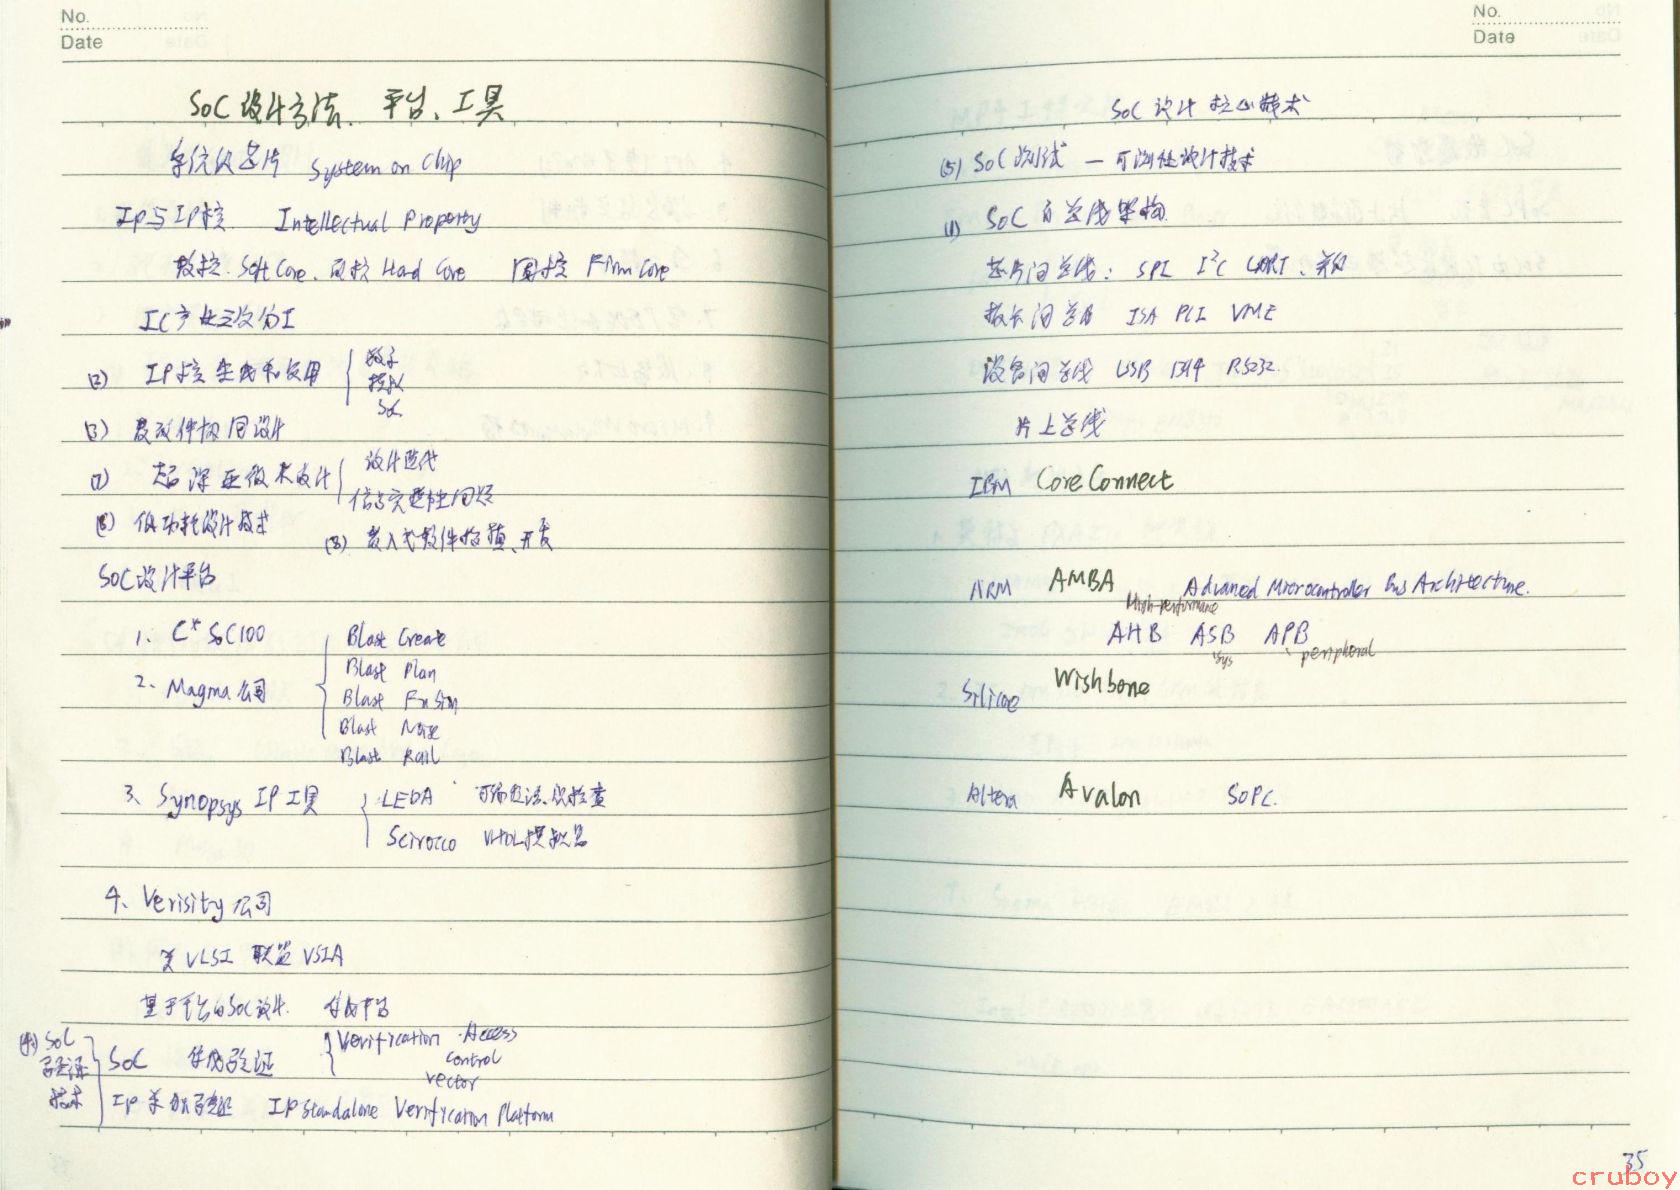 No.
Date
SoC 设计方法、平台、工具
系统级芯片 System on Chip
IP与IP核 Intellectual Property
软核 Soft Core、硬核 Hard Core 固核 Firm Core
IC产业三次分工
(2) IP核生成和复用 { 数字
模拟
SoC
(3) 软硬件协同设计
(7) 超深亚微米设计 { 设计迭代
信号完整性问题
(6) 低功耗设计技术 (8) 嵌入式软件移植、开发
SoC设计平台
1. C* SoC100
2. Magma公司 { Blast Create
Blast Plan
Blast Fusion
Blast Noise
Blast Rail
3、Synopsys IP工具 { LEDA 可编程语法检查
Scirocco VHDL模拟器
4、Verisity公司
VLSI 联盟 VSIA
基于平台的SoC设计 集成平台
(4) SoC
验证
技术
SoC 集成验证 { Verification Access
control
vector
IP 验证 IP Standalone Verification Platform
No.
Date
SoC 设计核心技术
(5) SoC 测试 — 可测性设计技术
(1) SoC 的总线架构
芯片间总线: SPI I²C UART、
板卡间总线 ISA PCI VME
设备间总线 USB 1394 RS232
片上总线
IBM CoreConnect
ARM AMBA Advanced Microcontroller Bus Architecture.
High-performance
AHB ASB APB
sys peripheral
Silicore Wishbone
Altera Avalon SOPC.
35
cruboy